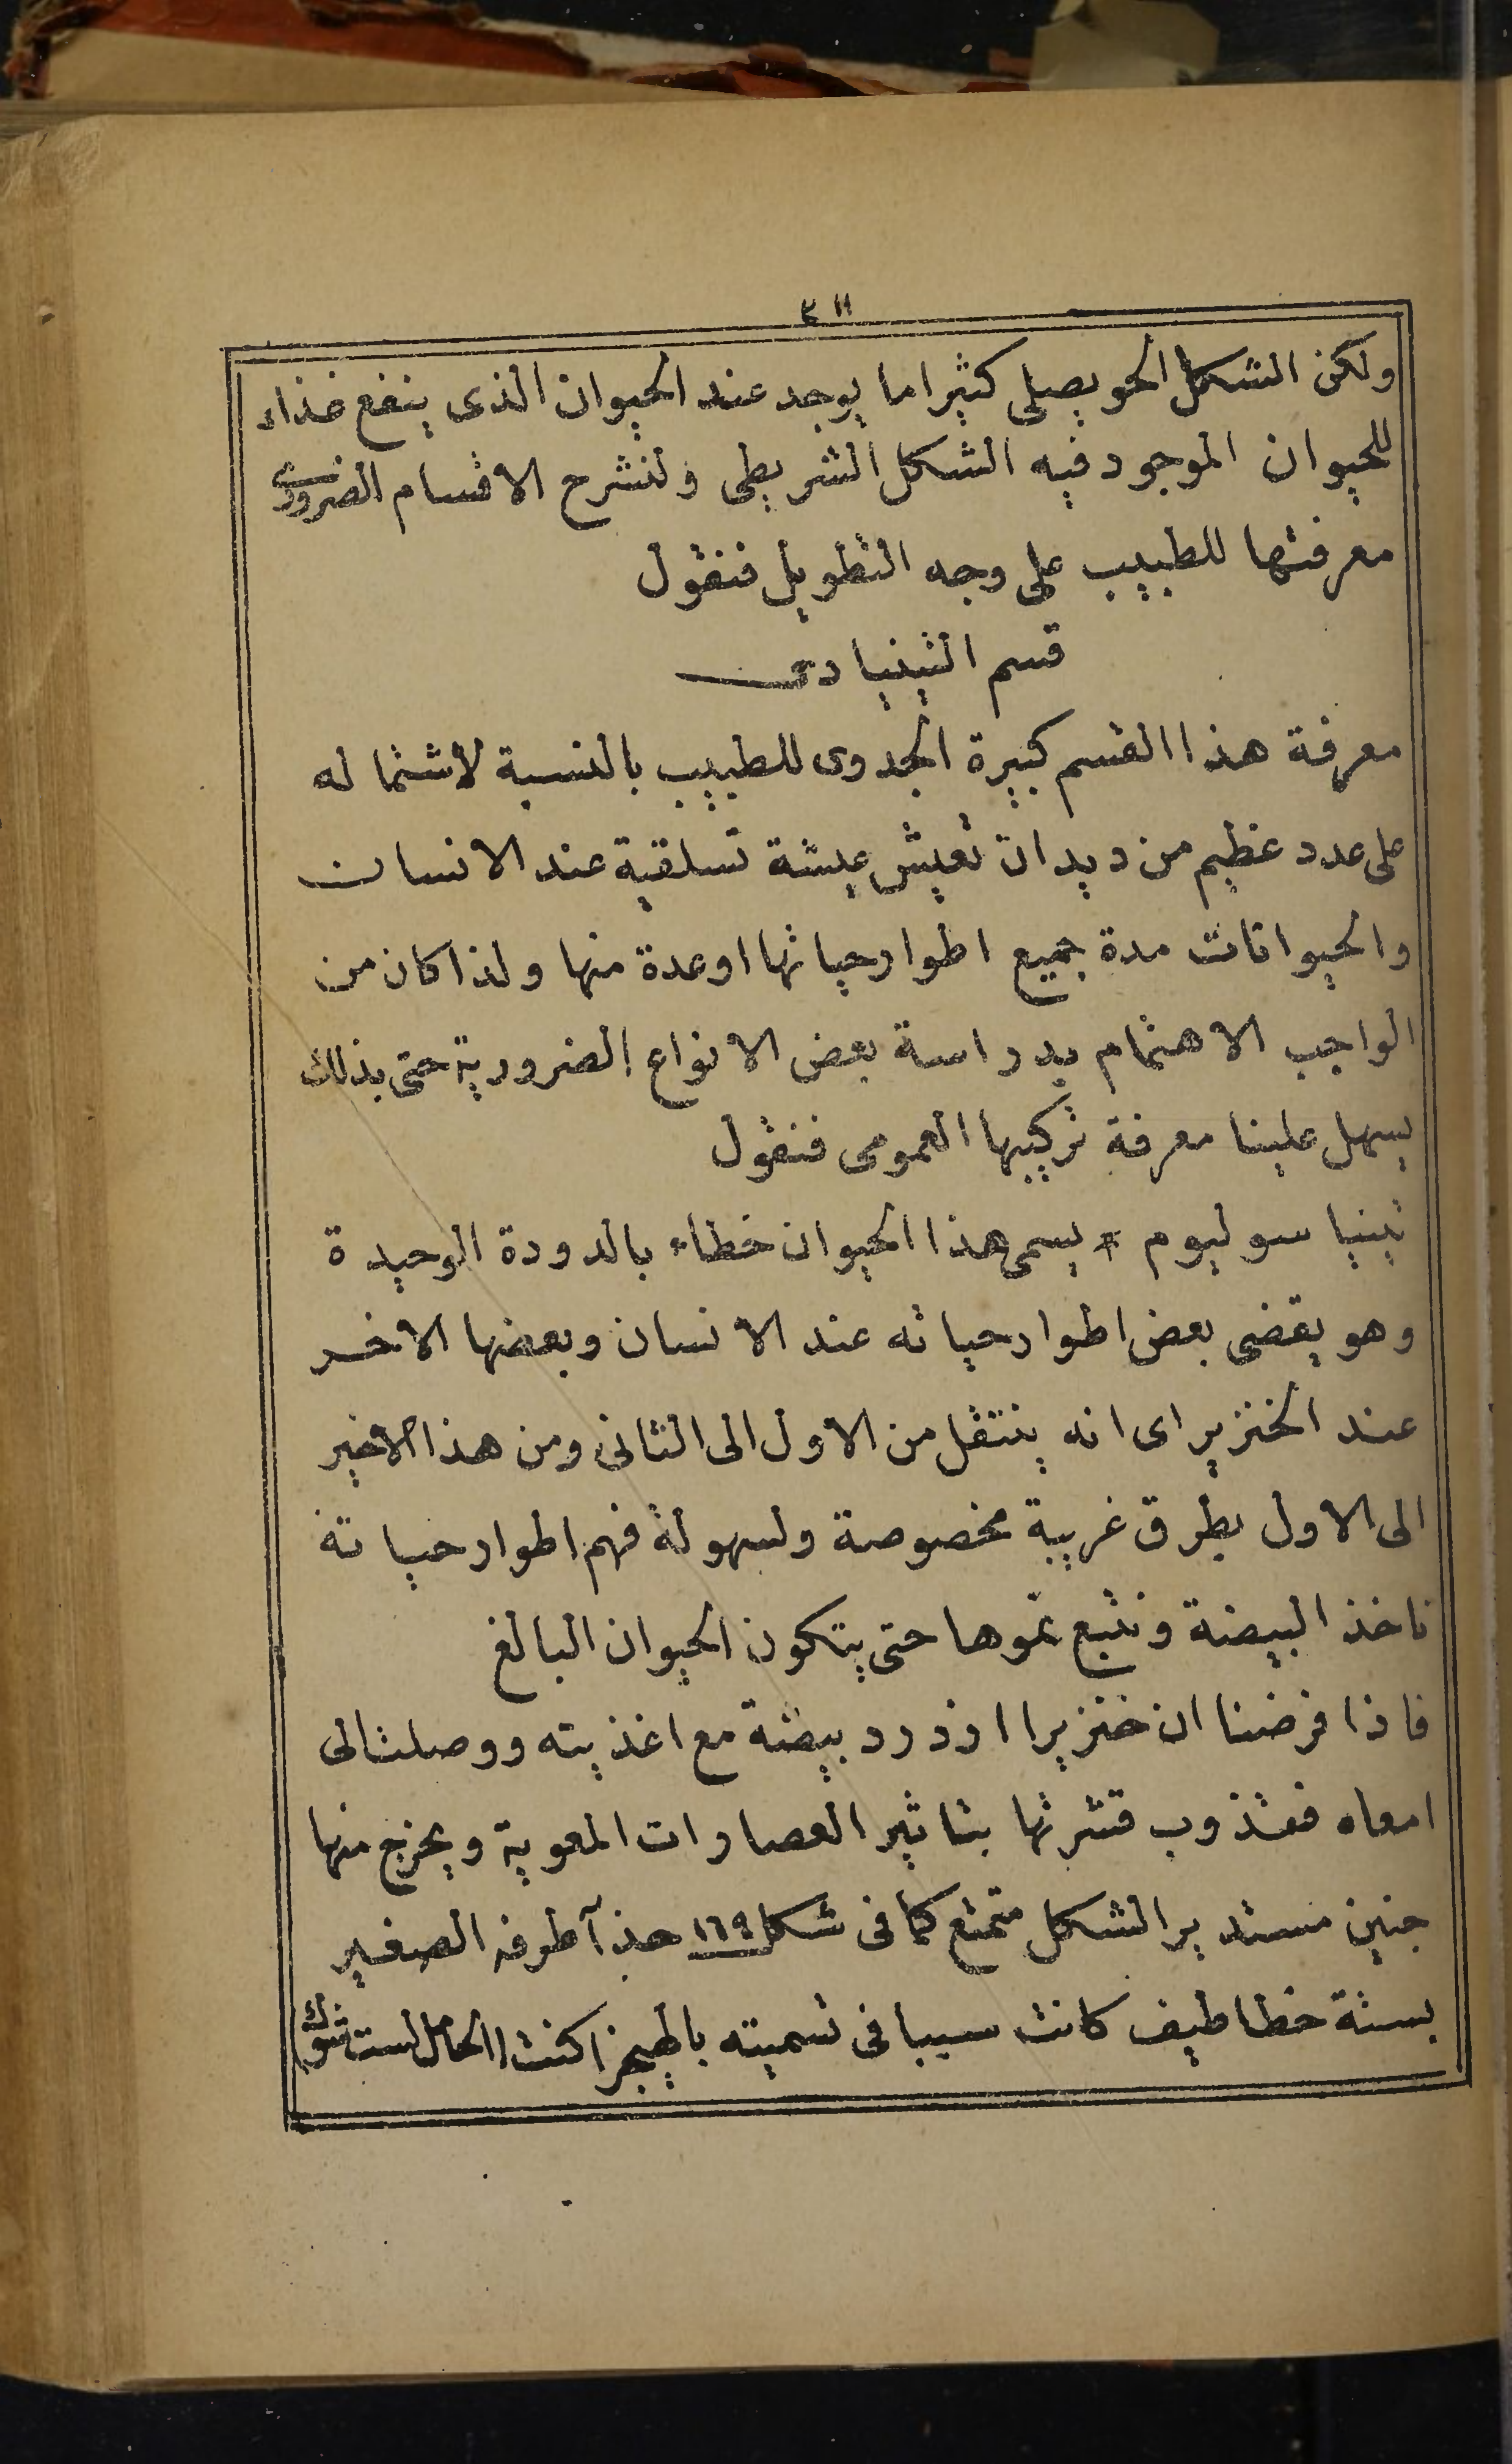 ٣١١
ولكن الشكل الحويصلى كثيرا ما يوجد عند الحيوان الذى ينفع غذاء
للحيوان الموجود فيه الشكل الشريطى ولنشرح الاقسام الضرورى
معرفتها للطبيب على وجه التطويل فنقول
قسم التينيادى
معرفة هذا القسم كبيرة الجدوى للطبيب بالنسبة لاشتماله
على عدد عظيم من ديدان تعيش عيشة تسلقية عند الانسان
والحيوانات مدة جميع اطوار حياتها او عدة منها ولذا كان من
الواجب الاهتمام بدراسة بعض الانواع الضرورية حتى بذلك
يسهل علينا معرفة تركيبها العمومى فنقول
تينيا سوليوم * يسمى هذا الحيوان خطاء بالدودة الوحيدة
وهو يقضى بعض اطوار حياته عند الانسان وبعضها الاخر
عند الخنزير اى انه ينتقل من الاول الى الثانى ومن هذا الاخير
الى الاول بطرق غريبة مخصوصة ولسهولة فهم اطوار حياته
ناخذ البيضة ونتبع نموها حتى يتكون الحيوان البالغ
فاذا فرضنا ان خنزيرا ازدرد بيضة مع اغذيته ووصلت الى
امعاه فتذوب قشرتها بتاثير العصارات المعوية ويخرج منها
جنين مستدير الشكل متمتع كما فى شكل ١٦٩ حذآ طرفه الصغير
بستة خطاطيف كانت سببا فى تسميته باطيجزاكنت (الحامل لست شوك)